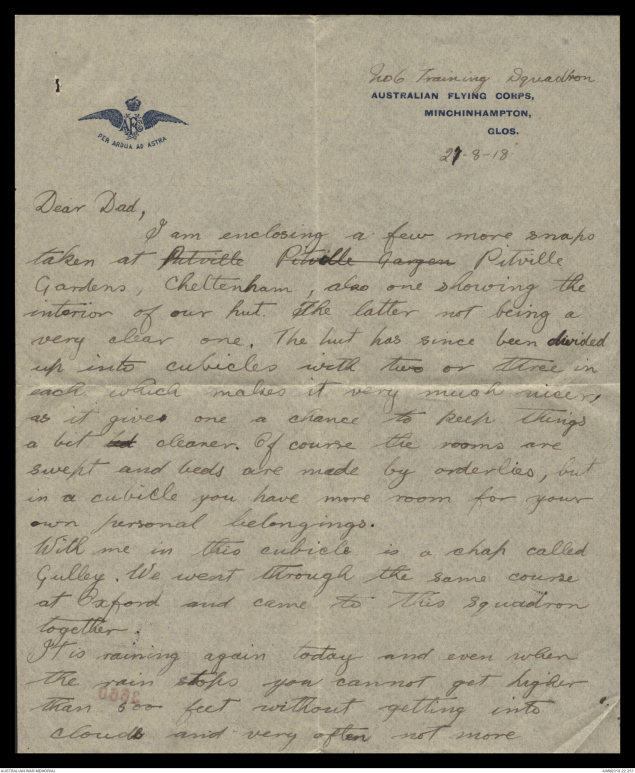 No 6 Training Squadron
AUSTRALIAN FLYING CORPS,
MINCHINHAMPTON,
GLOS.
PER ARDUA AD ASTRA
27-8-18
Dear Dad,
I am enclosing a few more snaps
taken at Pitville Pitville Gargen Pitville
Gardens, Cheltenham, also one showing the
interior of our hut. The latter not being a
very clear one. The hut has since been divided
up into cubicles with two or three in
each which makes it very much nicer,
as it gives one a chance to keep things
a bit cleaner. Of course the rooms are
swept and beds are made by orderlies, but
in a cubicle you have more room for your
own personal belongings.
With me in this cubicle is a chap called
Gulley. We went through the same course
at Oxford and came to this squadron
together.
It is raining again today and even when
the rain stops you cannot get higher
than 500 feet without getting into
clouds and very often not more
AUSTRALIAN WAR MEMORIAL